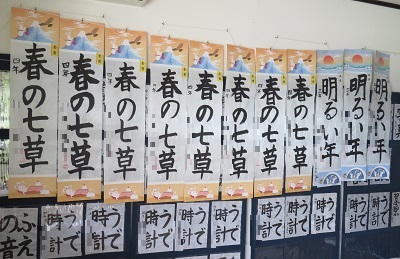 春の七草
四年
春の七草
四年
春の七草
春の七草
春の七草
春の七草
春の七草
春の七草
明るい年
明るい年
明るい年
ふえ
の音
うで
時計
うで
時計
うで
時計
うで
時計
うで
時計
うで
時計
うで
時計
うで
時計
うで
時計